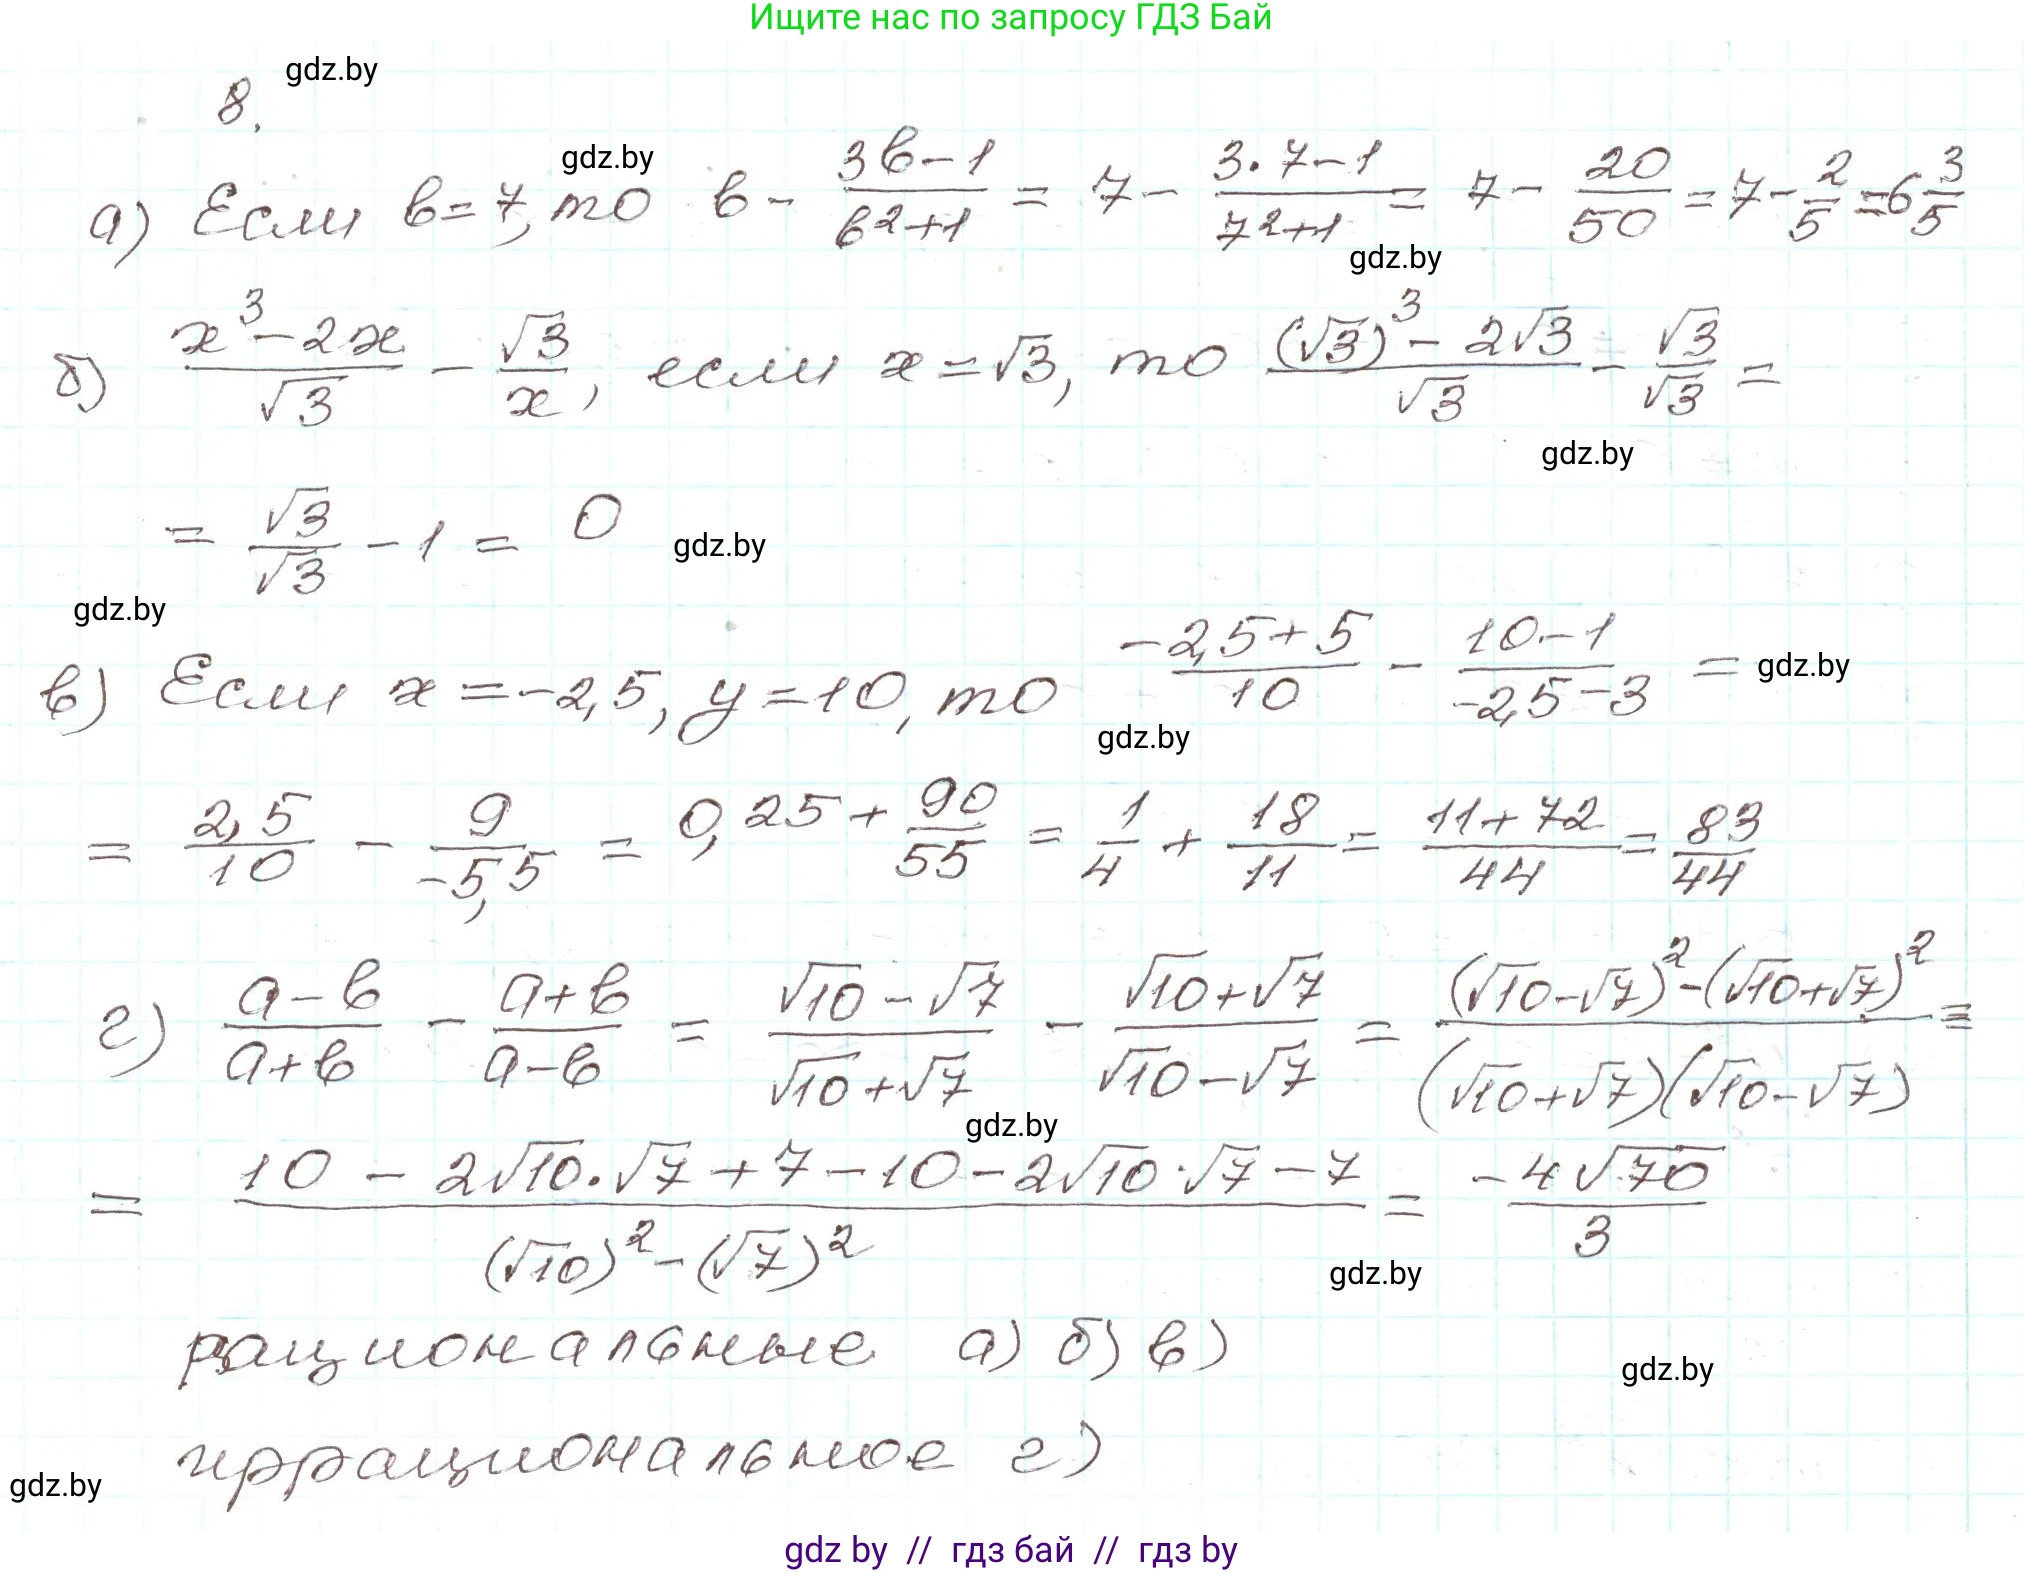 Ищите нас по запросу ГДЗ Бай
gdz.by
8.
gdz.by
а) Если b=7, то b - (3b-1)/(b²+1) = 7 - (3·7-1)/(7²+1) = 7 - 20/50 = 7 - 2/5 = 6 3/5
gdz.by
б) (x³-2x)/√3 - √3/x, если x=√3, то ((√3)³-2√3)/√3 - √3/√3 =
gdz.by
= √3/√3 - 1 = 0
gdz.by
gdz.by
в) Если x=-2,5, y=10, то (-2,5+5)/10 - (10-1)/(-2,5-3) =
gdz.by
gdz.by
= 2,5/10 - 9/(-5,5) = 0,25 + 90/55 = 1/4 + 18/11 = (11+72)/44 = 83/44
г) (a-b)/(a+b) - (a+b)/(a-b) = (√10-√7)/(√10+√7) - (√10+√7)/(√10-√7) = ((√10-√7)²-(√10+√7)²)/((√10+√7)(√10-√7)) =
gdz.by
= (10-2√10·√7+7-10-2√10·√7-7)/((√10)²-(√7)²) = -4√70/3
gdz.by
рациональные а) б) в)
gdz.by
иррациональное г)
gdz.by
gdz by // гдз бай // гдз by